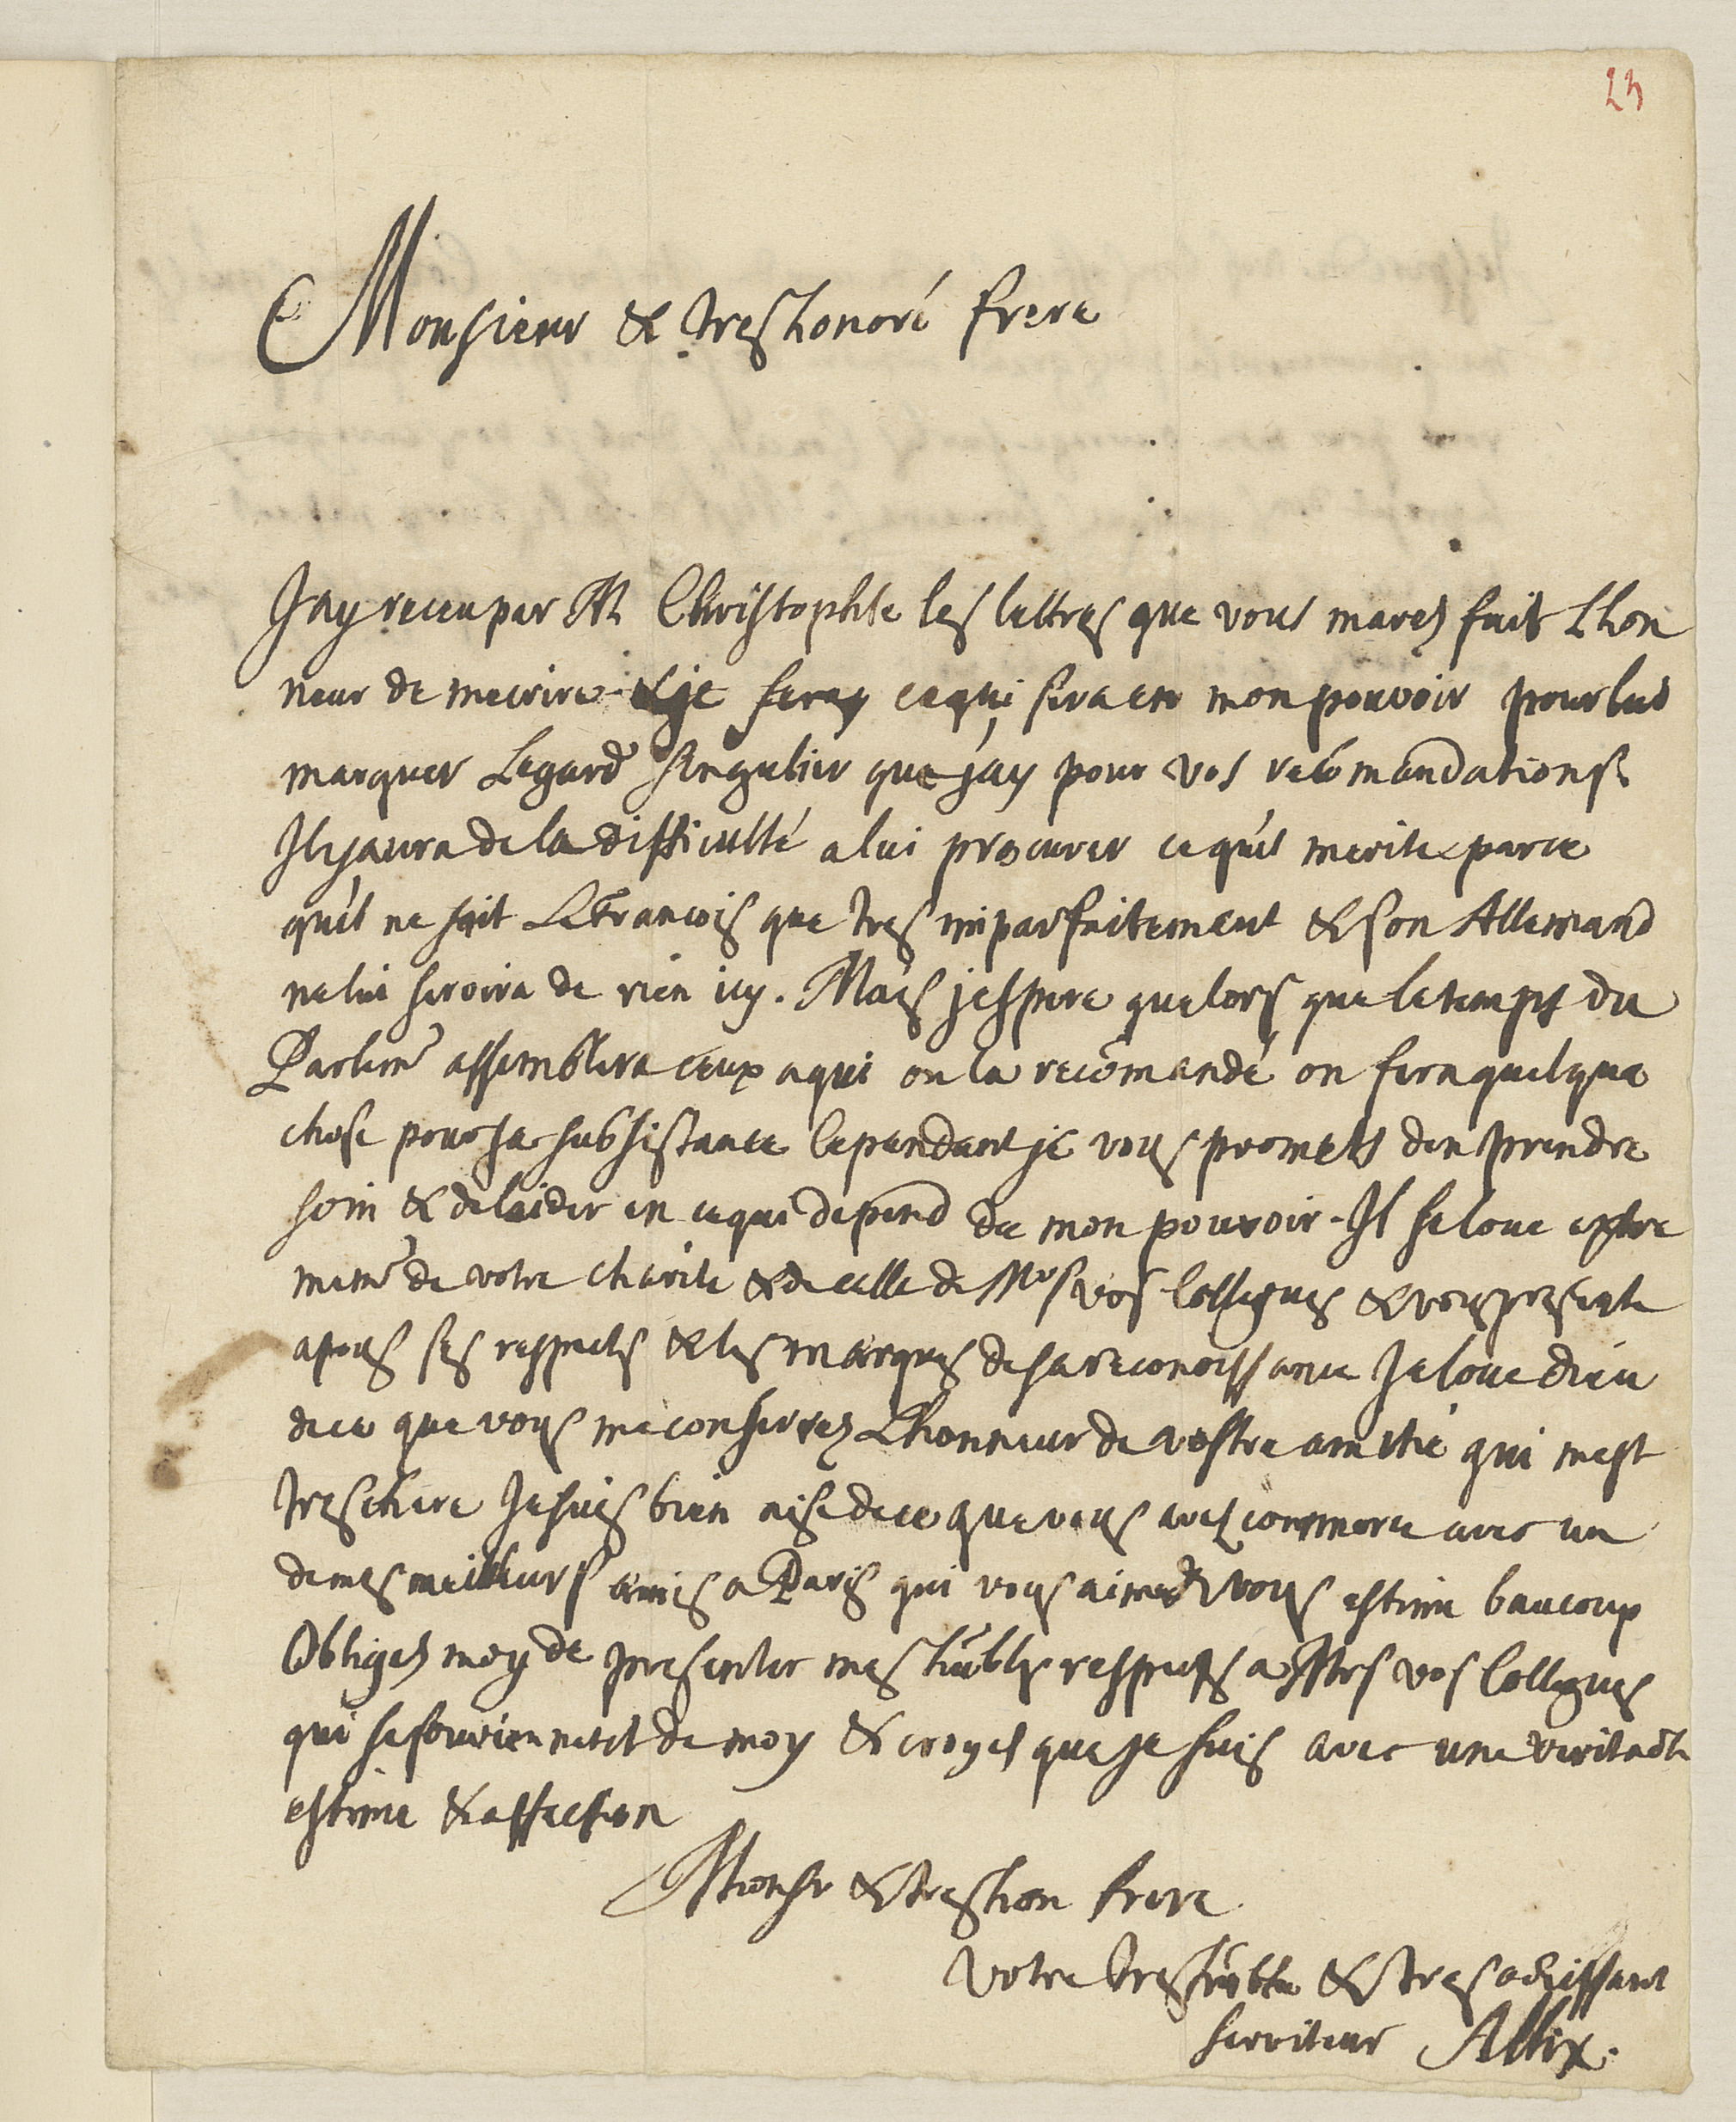 23
Monsieur & tres honoré frere
Jay receu par M Christophle les lettres que vous mavez fait Lhon
neur de mecrire & je feray ce qui sera en mon pouvoir pour lui
marquer Legard singulier que jay pour vos recomandations.
Il y aura de la difficulté a lui procurer ce quil merite parce
quil ne sçait Le Francois que tres imparfaitement & son Allemand
ne lui servira de rien icy. Mais jespere que lors que le temps du
Parlemt assemblera ceux a qui on la recomandé on fera quelque
chose pour sa subsistance Cependant je vous promets den prendre
soin & de laider en ce qui depend de mon pouvoir. Il se loue extre
memt de votre charite & de celle de Mrs vos Collegues & vous presente
a tous ses respects & les marques de sa reconoissance Je loue dieu
de ce que vous me conservez Lhonneur de vostre amitié qui mest
tres chere Je suis bien aise de ce que vous avez commerce avec un
de mes meilleurs amis a Paris qui vous aime & vous estime baucoup
Obligez moy de presenter mes hũbles respects a Mrs vos Collegues
qui se souviennent de moy & croyez que je suis avec une veritable
estime & affection
Monsr & tres hon frere
Votre tres hũble & tres obeissant
serviteur Allix.